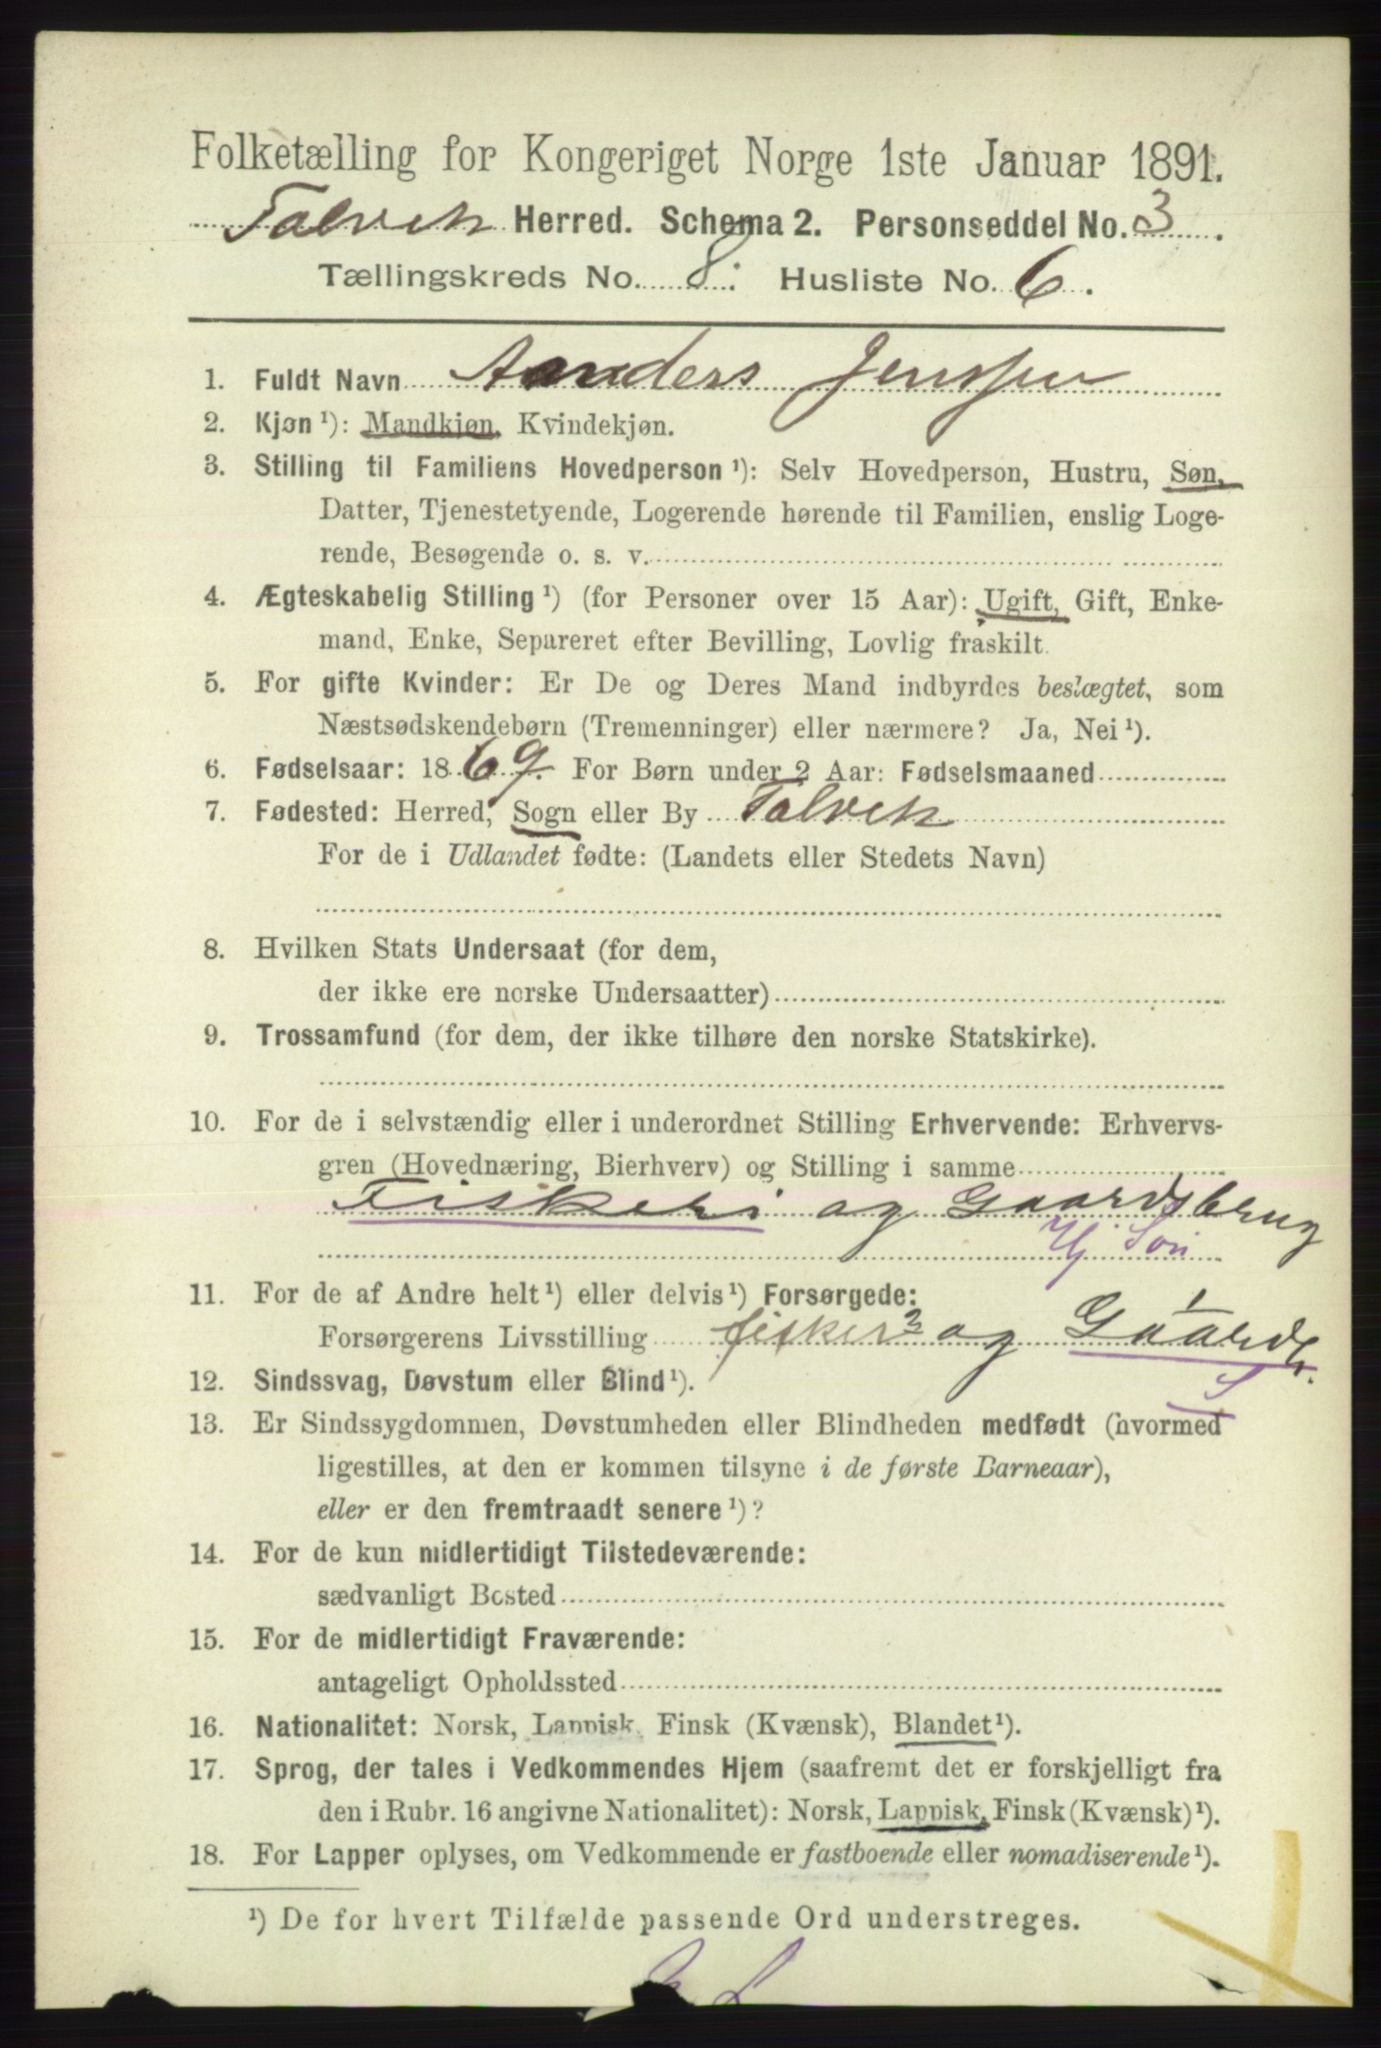 Folketælling for Kongeriget Norge 1ste Januar 1891.
Talvik Herred. Schema 2. Personseddel No. 3.
Tællingskreds No. 8. Husliste No. 6.
1. Fuldt Navn Anders Jenssen
2. Kjøn ¹): Mandkjøn, Kvindekjøn.
3. Stilling til Familiens Hovedperson ¹): Selv Hovedperson, Hustru, Søn,
Datter, Tjenestetyende, Logerende hørende til Familien, enslig Loge-
rende, Besøgende o. s. v.
4. Ægteskabelig Stilling ¹) (for Personer over 15 Aar): Ugift, Gift, Enke-
mand, Enke, Separeret efter Bevilling, Lovlig fraskilt.
5. For gifte Kvinder: Er De og Deres Mand indbyrdes beslægtet, som
Næstsødskendebørn (Tremenninger) eller nærmere? Ja, Nei ¹).
6. Fødselsaar: 1869. For Børn under 2 Aar: Fødselsmaaned
7. Fødested: Herred, Sogn eller By Talvik
For de i Udlandet fødte: (Landets eller Stedets Navn)
8. Hvilken Stats Undersaat (for dem,
der ikke ere norske Undersaatter)
9. Trossamfund (for dem, der ikke tilhøre den norske Statskirke).
10. For de i selvstændig eller i underordnet Stilling Erhvervende: Erhvervs-
gren (Hovednæring, Bierhverv) og Stilling i samme
Fiskeri og Gaardsbrug
Hj Søn
11. For de af Andre helt ¹) eller delvis ¹) Forsørgede:
Forsørgerens Livsstilling fisker og Gaardb.
12. Sindssvag, Døvstum eller Blind ¹).
13. Er Sindssygdommen, Døvstumheden eller Blindheden medfødt (hvormed
ligestilles, at den er kommen tilsyne i de første Barneaar),
eller er den fremtraadt senere ¹)?
14. For de kun midlertidigt Tilstedeværende:
sædvanligt Bosted
15. For de midlertidigt Fraværende:
antageligt Opholdssted
16. Nationalitet: Norsk, Lappisk, Finsk (Kvænsk), Blandet ¹).
17. Sprog, der tales i Vedkommendes Hjem (saafremt det er forskjelligt fra
den i Rubr. 16 angivne Nationalitet): Norsk, Lappisk, Finsk (Kvænsk) ¹).
18. For Lapper oplyses, om Vedkommende er fastboende eller nomadiserende ¹).
¹) De for hvert Tilfælde passende Ord understreges.